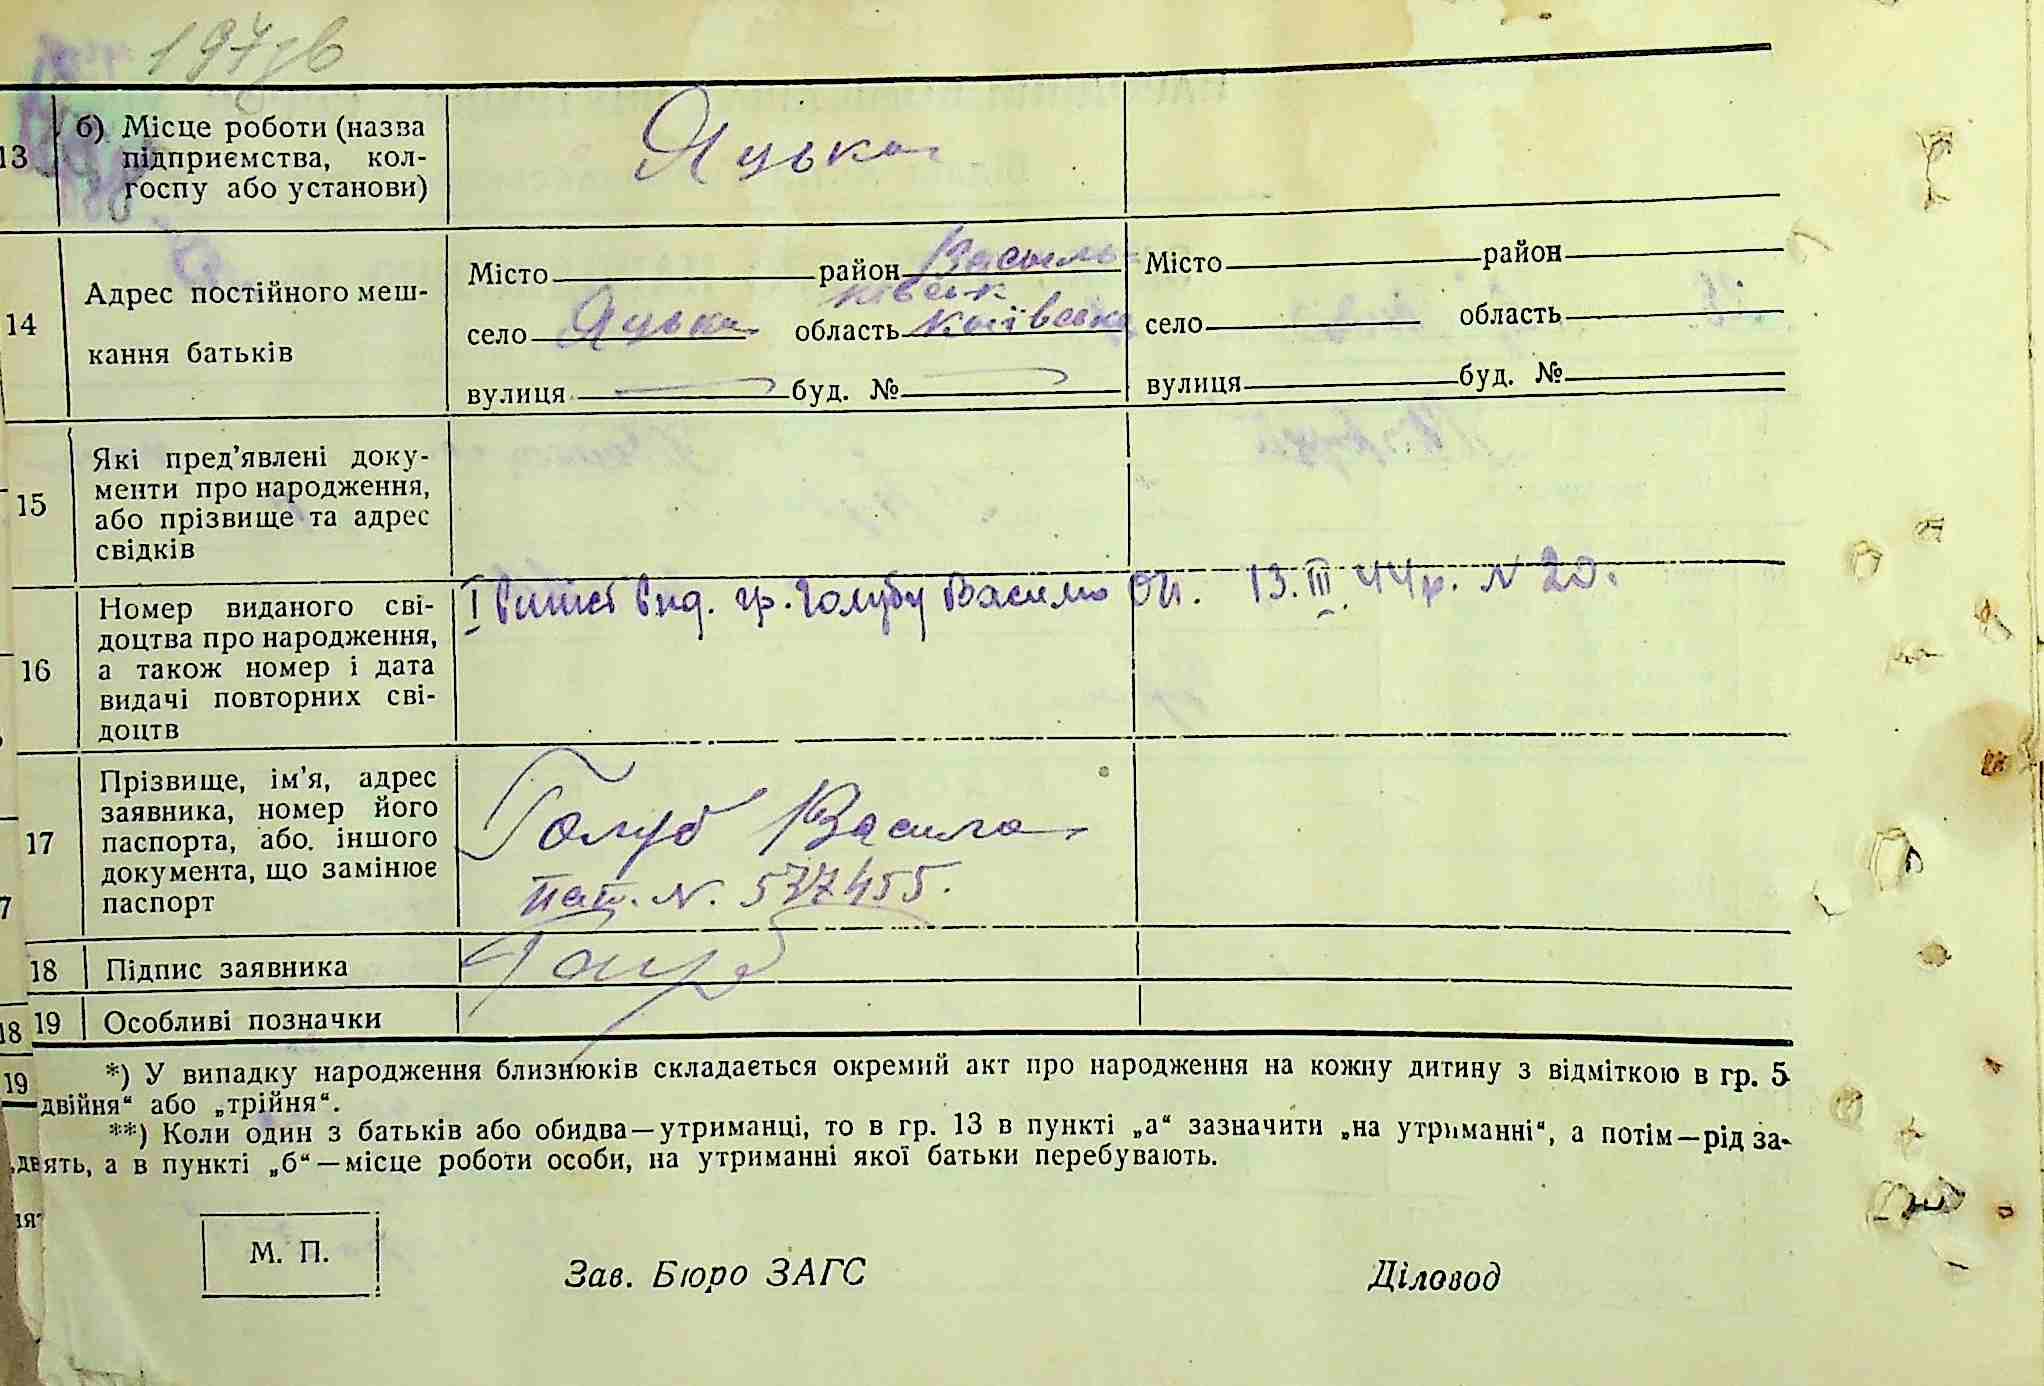 197зв
13 б) Місце роботи (назва
підприємства, кол-
госпу або установи)
Яцька
14 Адрес постійного меш-
кання батьків
Місто район Василь-
ківськ
село Яцька область Київська
вулиця буд. №
Місто район
село область
вулиця буд. №
15 Які пред'явлені доку-
менти про народження,
або прізвище та адрес
свідків
16 Номер виданого сві-
доцтва про народження,
а також номер і дата
видачі повторних сві-
доцтв
І витяг вид. гр. Голубу Василю 13.III.44р. N 20.
17 Прізвище, ім'я, адрес
заявника, номер його
паспорта, або. іншого
документа, що замінює
паспорт
Голуб Василь
пас. N. 537455.
18 Підпис заявника
Голуб
19 Особливі позначки
*) У випадку народження близнюків складається окремий акт про народження на кожну дитину з відміткою в гр. 5
двійня“ або „трійня“.
**) Коли один з батьків або обидва—утриманці, то в гр. 13 в пункті „а“ зазначити „на утриманні“, а потім—рід за-
ять, а в пункті „б“—місце роботи особи, на утриманні якої батьки перебувають.
М. П.
Зав. Бюро ЗАГС
Діловод